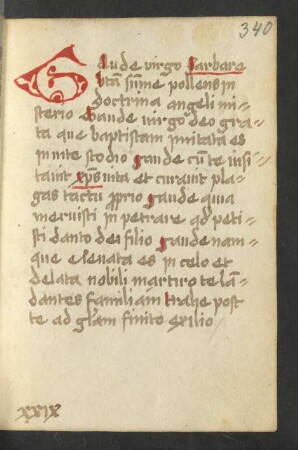 340
Gaude virgo barbare
btā sūme pollens in
doctrina angeli mi-
sterio Gaude virgo deo gra-
ta que baptistam imitata es
in vite stodio gaude cū te visi-
tavit xp̄s vita et curavit pla-
gas tactu proprio gaude quia
meruisti in petrare ad peti-
sti danto dei filio gaude nam-
que elevata es in celo et
delata nobili martiro te lau-
dantes familiam trahe post
te ad gl̄am finito exilio
xxix